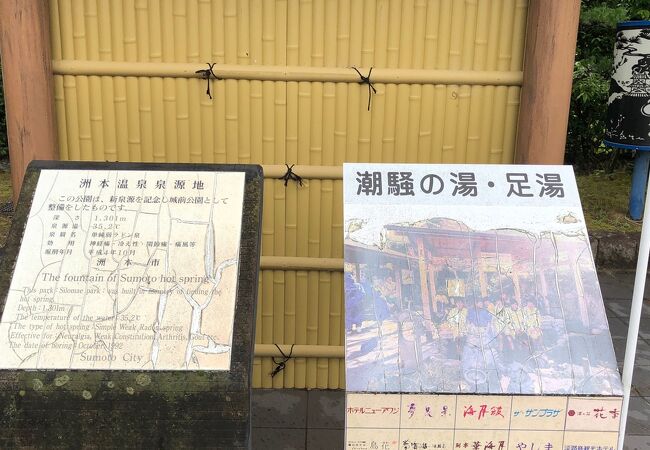 洲本温泉泉源地
この公園は、新泉源を記念し城前公園として
整備をしたものです。
深さ 1,301m
泉源温 35.2℃
泉質名 単純弱ラドン泉
効用 神経痛・冷え性・関節痛・痛風等
掘削年月 平成4年10月
洲本市
The fountain of Sumoto hot spring
This park : Siromae park : was built in
the hot spring.
Depth : 1,301m
The temperature of the water : 35.2℃
The type of hot spring : Simple Weak Radon spring
Effective for : Neuralgia, Weak Constitution, Arthritis, Gout etc.
The date of boring : October 1992
Sumoto City
潮騒の湯・足湯
ホテルニューアワジ
夢泉景
海月館
ザ・サンプラザ
花季
島花
華海月
やしま
淡路島観光ホテル